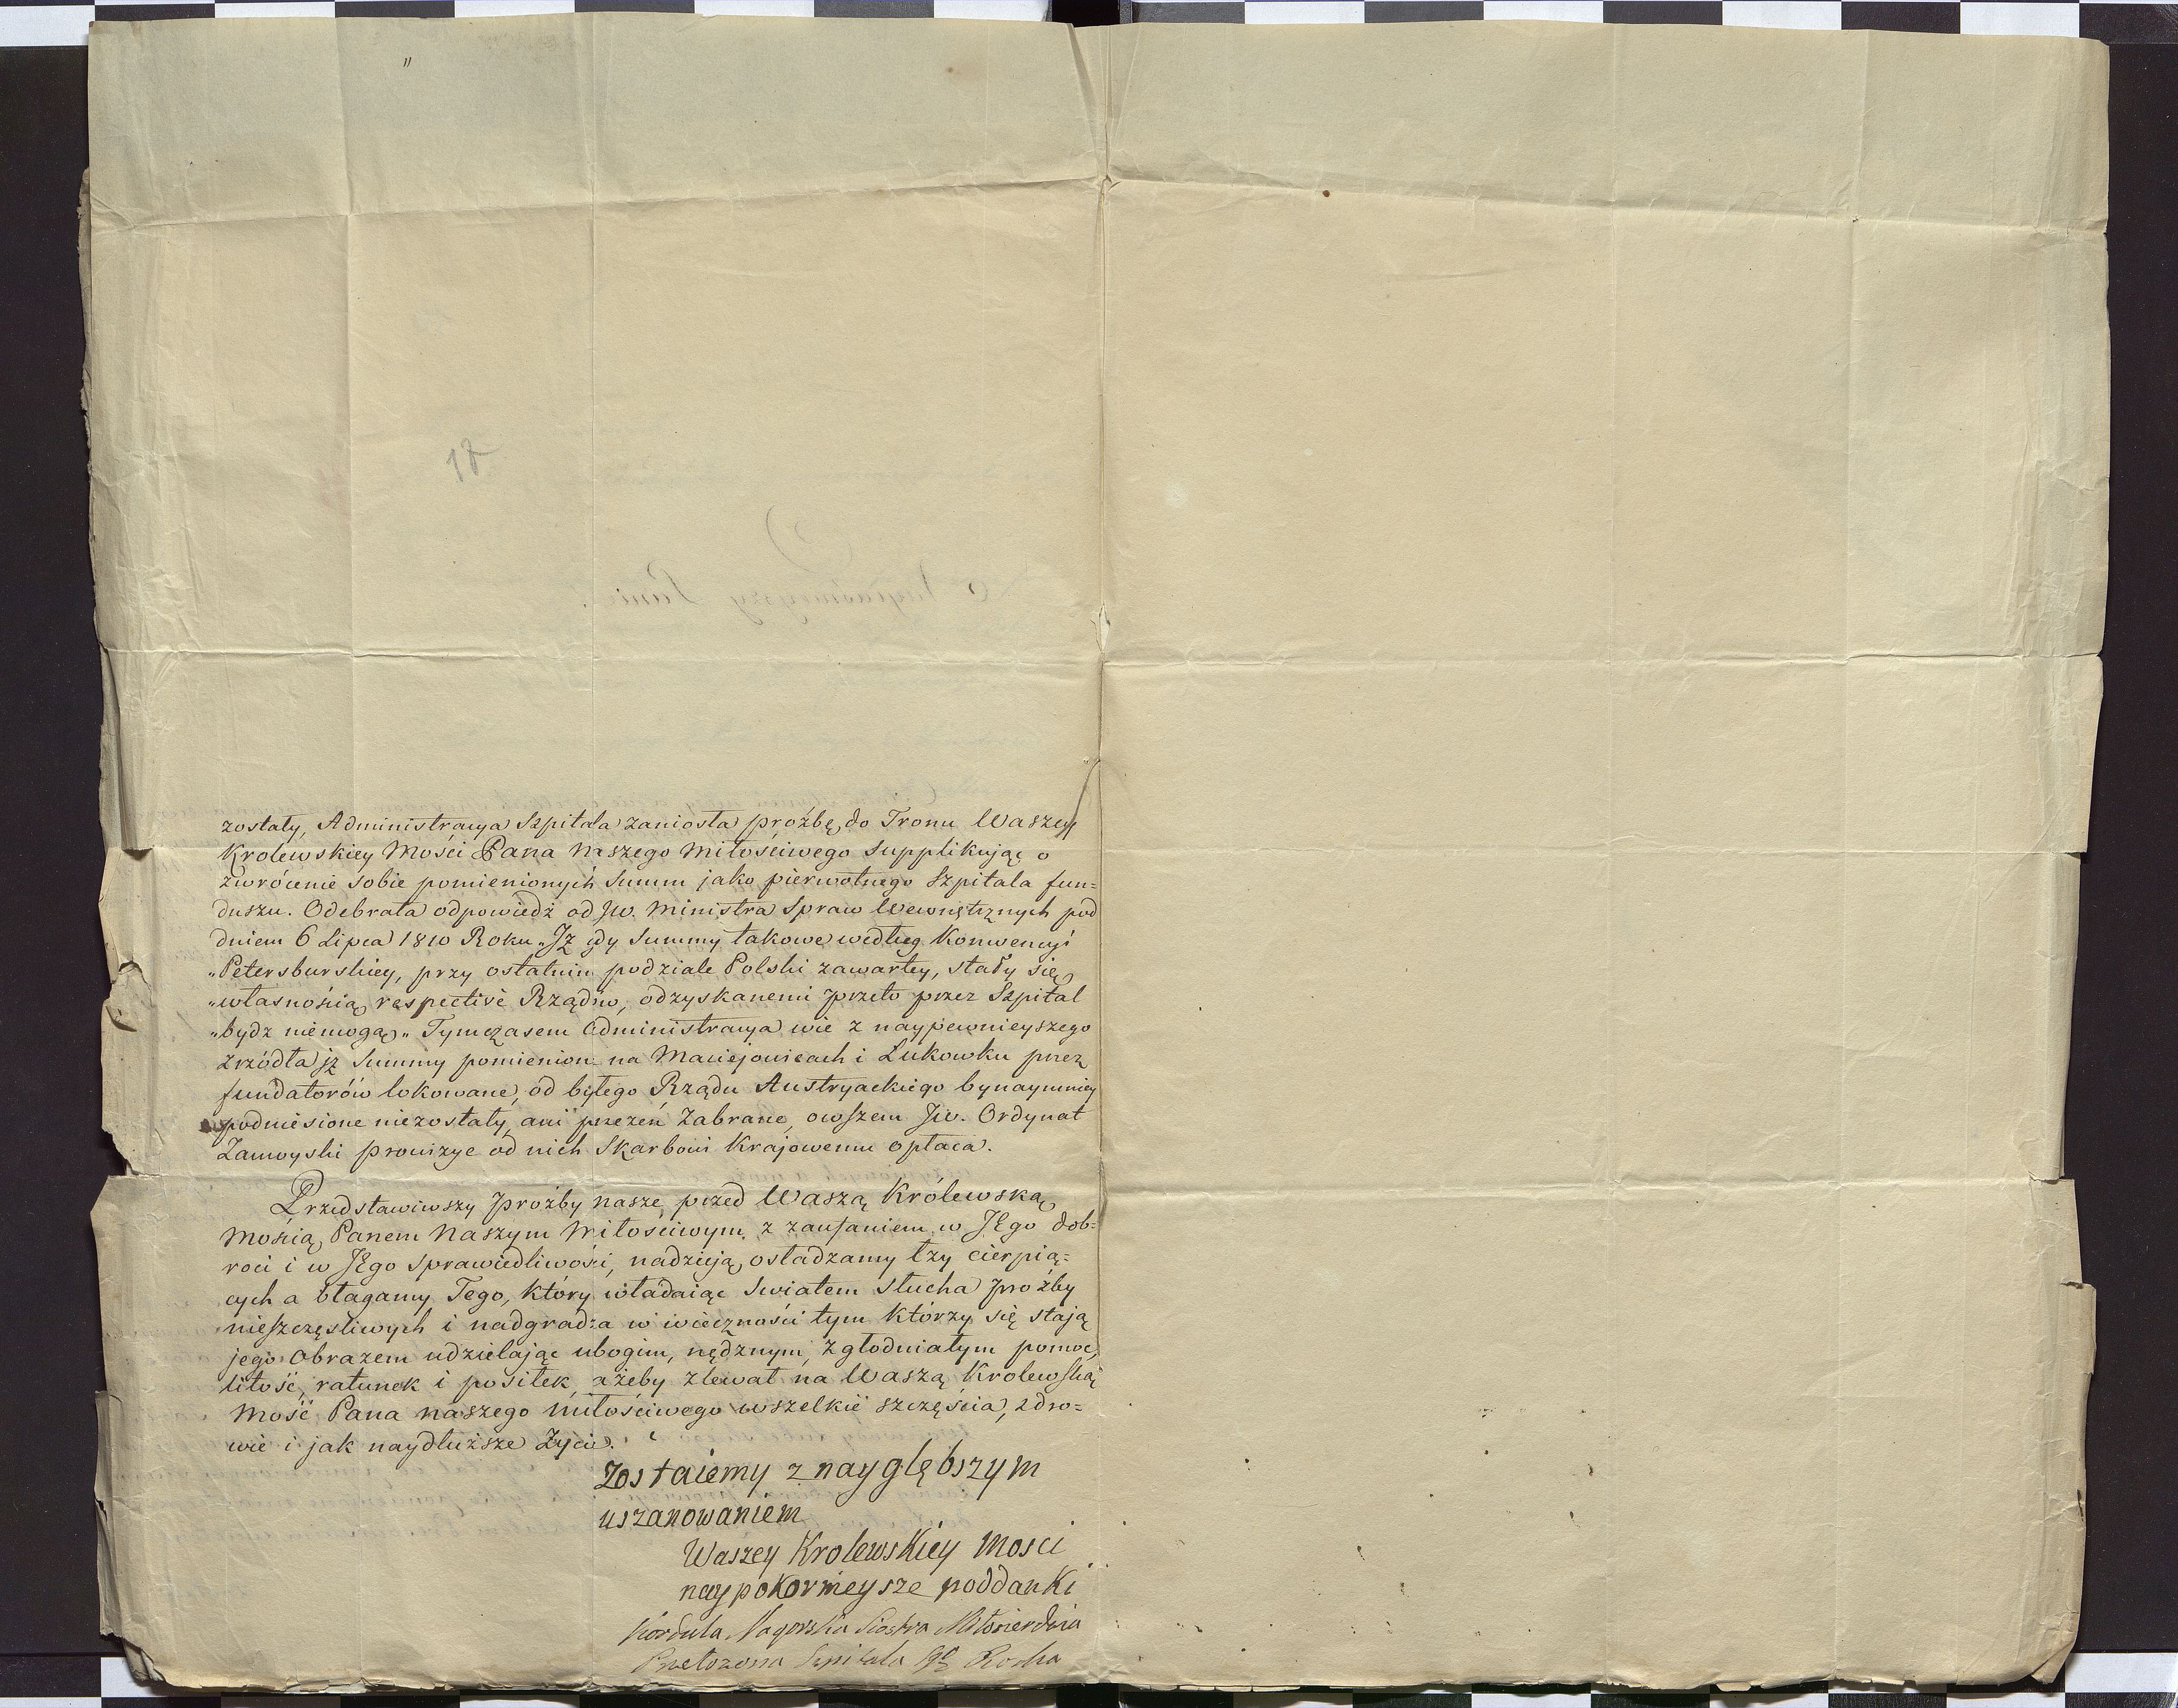 17
zostały, Administracya Szpitala zaniosła proźbę do Tronu Waszey
Krolewskiey Mości Pana Naszego Miłościwego supplikując o
zwrócenie sobie pomienionych Summ jako pierwotnego Szpitala fun=
duszu. Odebrała odpowiedź od JW. Ministra Spraw Wewnętrznych pod
dniem 6 Lipca 1810 Roku „Jż gdy Summy takowe według Konwencyi
„Petersburskiey, przy ostatnim podziale Polski zawartey, stały się
„własnością respective Rządów, odzyskanemi przeto przez Szpital
„bydz niemogą„ Tymczasem Administracya wie z naypewnieyszego
zrzódła jż Summy pomienione na Maciejowicach i Łukowku przez
fundatorów lokowane, od byłego Rządu Austryackiego bynaymniey
podniesione niezostały, ani przezeń zabrane, owszem JW. Ordynat
Zamoyski prowizye od nich Skarbowi Krajowemu opłaca.
Przedstawiwszy proźby nasze, przed Waszą Królewską
Mością Panem Naszym Miłościwym, z zaufaniem w JEgo dob=
roci i w JEgo Sprawiedliwości, nadzieją osładzamy łzy cierpią=
cych a błagamy Tego, który władaiąc Swiatem słucha proźby
nieszczęśliwych i nadgradza w wieczności tym którzy się stają
jego Obrazem udzielając ubogim, nędznym, zgłodniałym pomoc,
litość, ratunek i posiłek, ażeby zlewał na Waszą Krolewską
Mość Pana naszego miłościwego wszelkie szczęścia, zdro=
wie i jak naydłuższe Życie.
Zostaiemy z nayglębszym
uszanowaniem
Waszey Krolewskiey Mosci
naypokornieysze poddanki
Kordula Magorska Siostra Miłosierdzia
Przełozona Szpitala Sgo Rocha